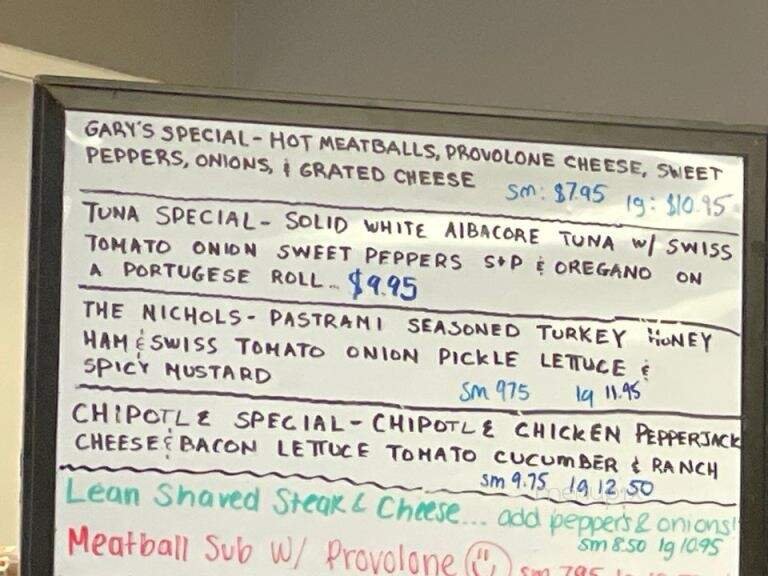 GARY'S SPECIAL - HOT MEATBALLS, PROVOLONE CHEESE, SWEET
PEPPERS, ONIONS, & GRATED CHEESE sm: $7.95 lg: $10.95
TUNA SPECIAL - SOLID WHITE AlBACORE TUNA W/ SWISS
TOMATO ONION SWEET PEPPERS S+P & OREGANO ON
A PORTUGESE ROLL... $9.95
THE NICHOLS - PASTRAMI SEASONED TURKEY HONEY
HAM & SWISS TOMATO ONION PICKLE LETTUCE &
SPICY MUSTARD sm 975 lg 11.95
CHIPOTLE SPECIAL - CHIPOTLE CHICKEN PEPPERJACK
CHEESE & BACON LETTUCE TOMATO CUCUMBER & RANCH
sm 9.75 lg 12.50
Lean Shaved Steak & Cheese... add peppers & onions!
sm 8.50 lg 10.95
Meatball Sub W/ Provolone sm 795